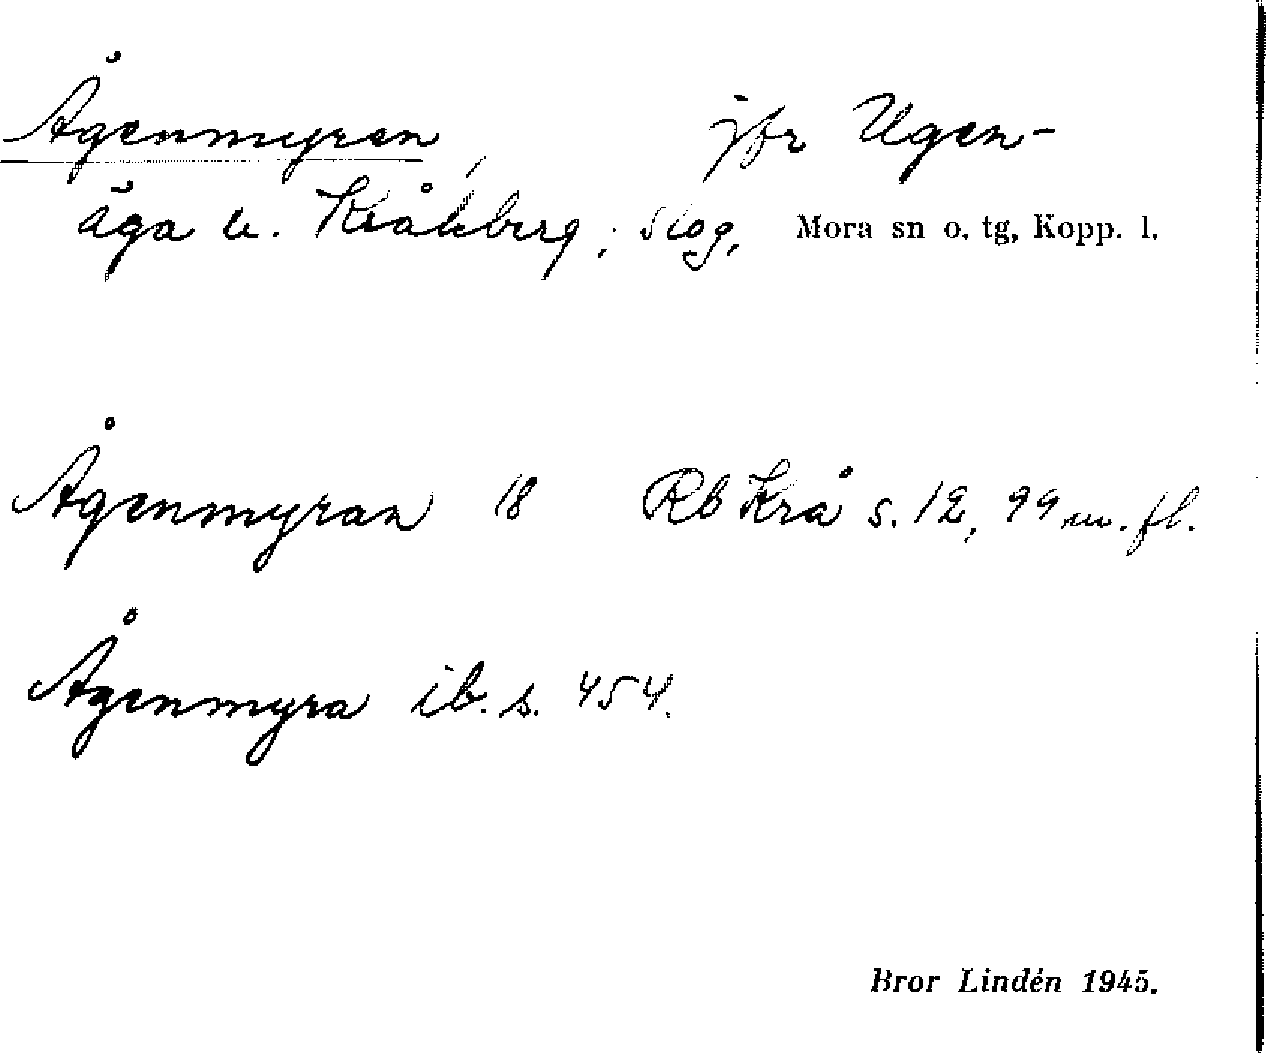 Ågenmyren, jfr Ugen-
äga v. Kråkberg, skog, Mora sn o. tg, Kopp. l.
Ågenmyran 18 Rb Krå s. 12, 99 m. fl.
Ågenmyra ib. s. 454.
Bror Lindén 1945.